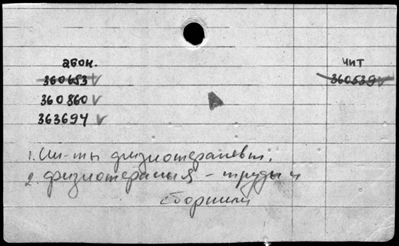 абон. чит
360653 360639
360860
363694
1. Ин-ты физиотерапевт.
2. физиотерапия – труды и
сборники